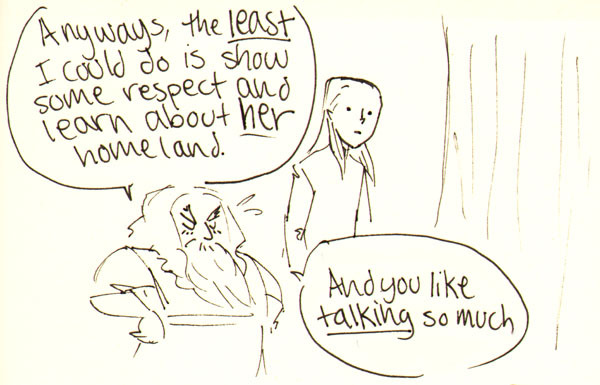 Anyways, the least
I could do is show
some respect and
learn about her
homeland.
And you like
talking so much